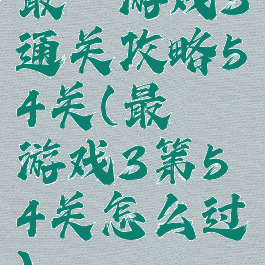 最 游戏3
通关攻略5
4关(最
游戏3第5
4关怎么过
)